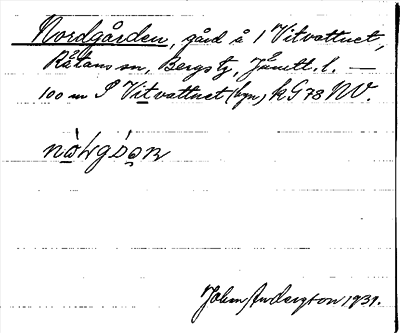 Nordgården, gård å 1 Vitvattnet,
Rätans sn, Bergs tg, Jämtl. l. —
100 m S Vitvattnet (byn) kG 78 NV.
John Anderzton 1931.